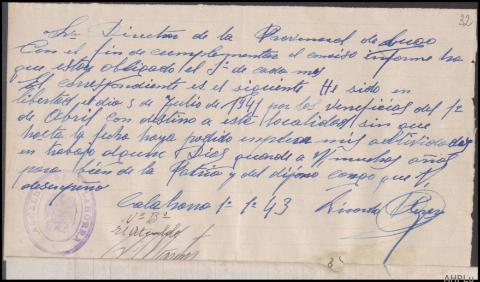 32
Sr. Director de la Provincial de Lugo
Con el fin de cumplimentar el conciso informe ha
que estoy obligado el 1º de cada mes
El correspondiente es el siguiente He sido en
libertad, el dia 3 de Julio de 1941 por los veneficios del 1º
de Abril con destino a esta localidad sin que
hasta la fecha haya podido emplear mis actividades
en trabajo alguno Dios guarde a V muchos años
para bien de la Patria y del digno cargo que V,
desempeña
Calahorra 1º 1º 43
Ricardo Perez
Vº Bº
AHPLu